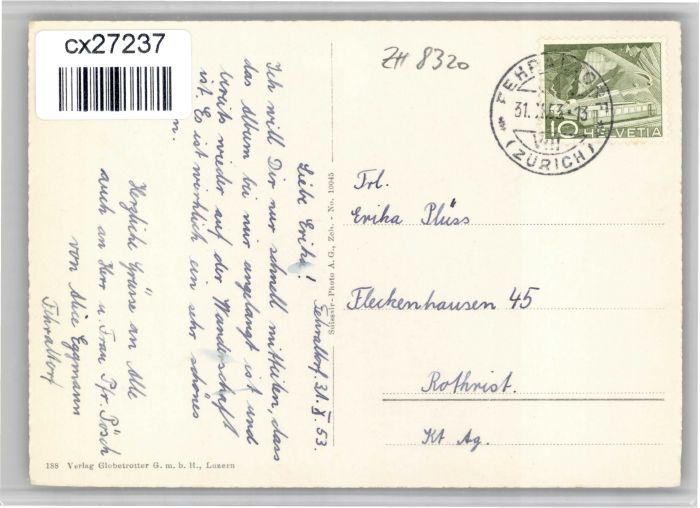 cx27237
ZH 8320
FEHRALTORF
31.X.53-13
VIII
(ZÜRICH)
10 HELVETIA
Frl.
Erika Plüss
Fleckenhausen 45
Rothrist.
Kt Ag.
Fehraltorf, 31. X. 53.
Liebe Erika!
Ich will Dir nur schnell mitteilen, dass
das Album bei mir angelangt ist und
bereits wieder auf der Wanderschaft
ist. Es ist wirklich ein sehr schönes
n.
Herzliche Grüsse an Alle
auch an Herr u. Frau Pfr. Pösch
von Alice Eggmann
Fehraltorf
Suissair-Photo A. G., Zch. - No. 10045
188 Verlag Globetrotter G. m. b. H., Luzern